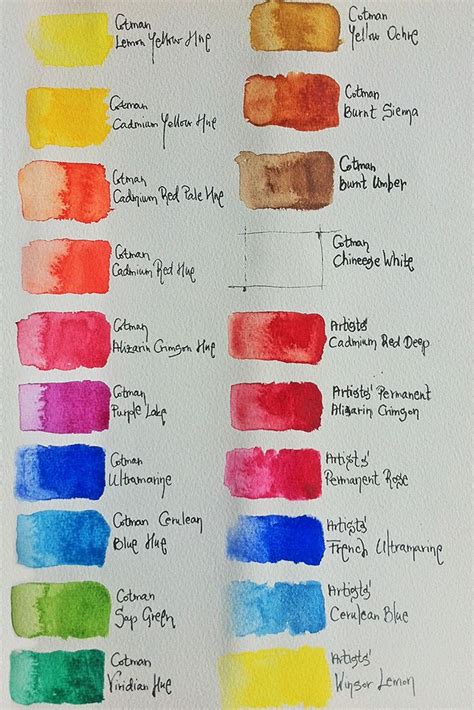 Cotman
Lemon Yellow Hue
Cotman
Cadmium Yellow Hue
Cotman
Cadmium Red Pale Hue
Cotman
Cadmium Red Hue
Cotman
Alizarin Crimson Hue
Cotman
Purple Lake
Cotman
Ultramarine
Cotman Cerulean
Blue Hue
Cotman
Sap Green
Cotman
Viridian Hue
Cotman
Yellow Ochre
Cotman
Burnt Sienna
Cotman
Burnt Umber
Cotman
Chineese White
Artists'
Cadmium Red Deep
Artists' Permanent
Alizarin Crimson
Artists'
Permanent Rose
Artists'
French Ultramarine
Artists'
Cerulean Blue
Artists'
Winsor Lemon